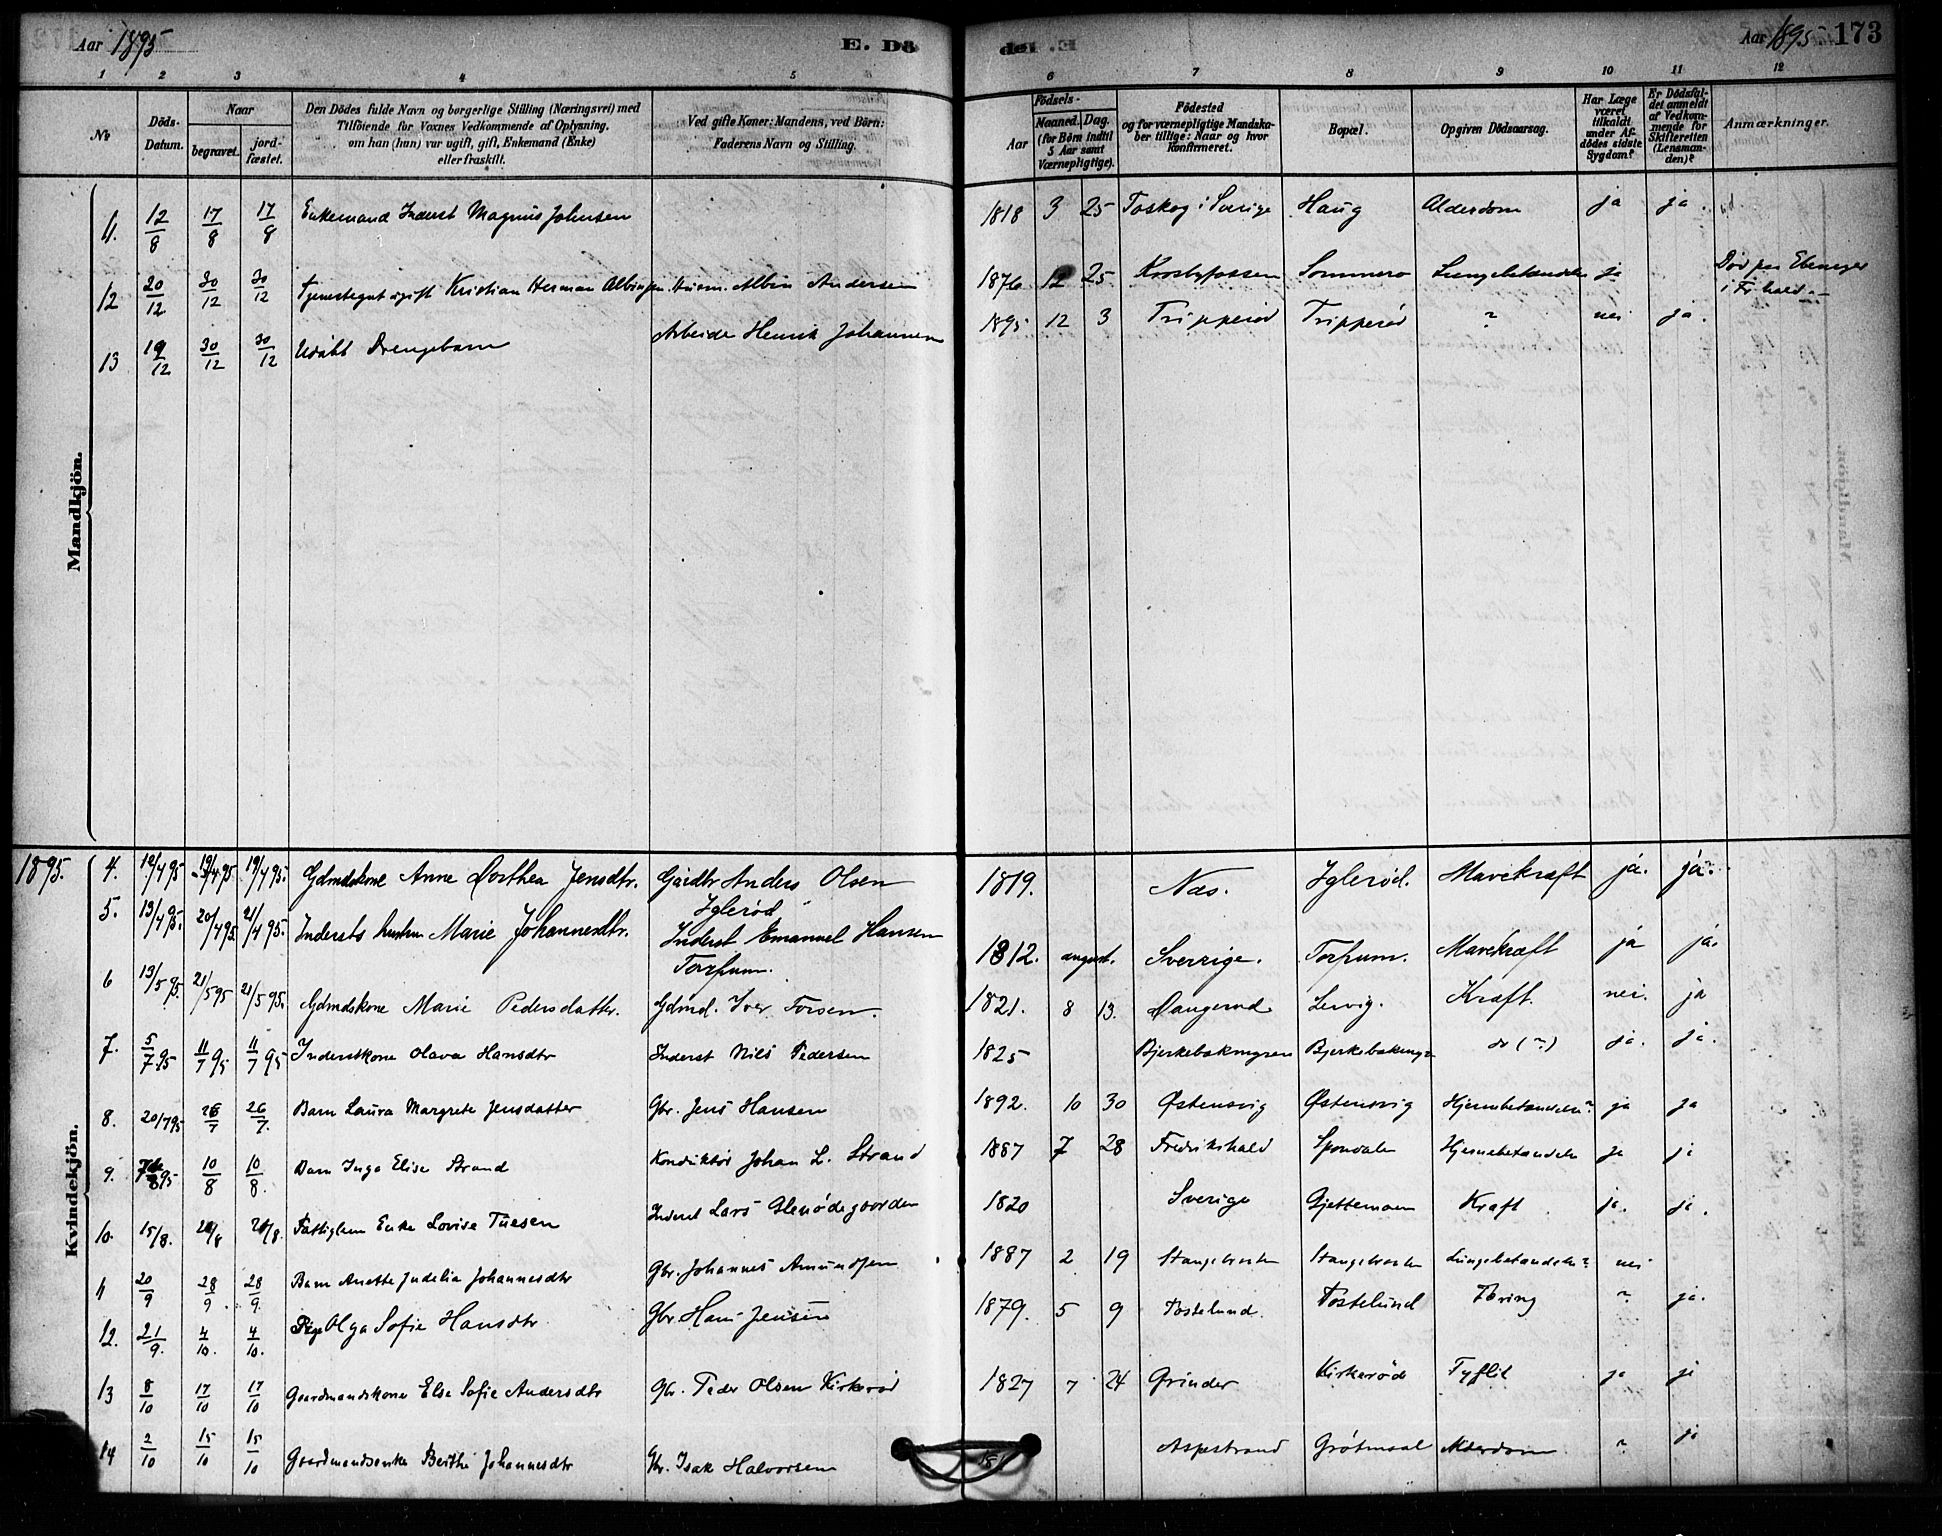 Aar 1895 E. Dö
del Aar 1895 173
1 2 3 4 5 6 7 8 9 10 11 12
No
Döds-Datum.
Naar
begravet. jord-fæstet.
Den Dödes fulde Navn og borgerlige Stilling (Næringsvei) med
Tilföiende for Voxnes Vedkommende af Oplysning.
om han (hun) var ugift, gift, Enkemand (Enke)
eller fraskilt.
Ved gifte Koner: Mandens, ved Börn:
Faderens Navn og Stilling.
Födsels-
Aar Maaned. Dag.
(for Börn indtil
5 Aar samt
Værnepligtige).
Födested
og for værnepligtige Mandska-
ber tillige: Naar og hvor
Konfirmeret.
Bopæl.
Opgiven Dödsaarsag.
Har Læge
været
tilkaldt
under Af-
dödes sidste
Sygdom?
Er Dödsfal-
det anmeldt
af Vedkom-
mende for
Skifteretten
(Lensman-
den)?
Anmærkninger.
Mandkjön.
11. 12/8 17/8 17/8 Enkemand Inderst Magnus Johnsen 1818 3 25 Toskog i Sverige Haug Alderdom ja ja.
12 20/12 30/12 30/12 Tjenestegut ugift Kristian Herman Albinsen Husm. Albin Andersen 1876 12 25 Sommero Lungebetændelse ja Död paa Ebenezer
i Fr.hald.
13 19/12 30/12 30/12 Udöbt Drengebarn Arbeider Henrik Johannesen 1895 12 3 Tripperød Tripperød ? nei ja.
1895.
Kvindekjön.
4. 12/4 95 19/4 95 19/4 95. Gdmdskone Anne Dorthea Jensdtr. Gårdbr Anders Olsen 1819. Næs. Iglerød. Mavekræft ja. ja.
Iglerød
5. 13/4 95. 20/4 95 21/4 95. Indersts hustru Marie Johannesdtr. Inderst Emanuel Hansen 1812. august. Sverrige. Torpum. Mavekræft ja ja.
Torpum.
6 13/5 95. 21/5 95 21/5 95. Gdmdskone Marie Pedersdatter. Gdmd. Iver Torsen. 1821. 8 13. Lervig. Kræft. nei. ja
7. 5/7 95 11/7 95 11/7 95 Inderstkone Olava Hansdtr Inderst Nils Pedersen 1825 do (?) ja. ja.
8. 20/7 95 26/7 26/7. Barn Laura Margrete Jensdatter Gbr. Jens Hansen 1892. 10 30 Østensvig Østensvig ja ja
9. 10/8 10/8. Barn Inga Elise Strand Konduktør Johan L. Strand 1887 7 28 Fredrikshald Sponvalen Hjernebetændelse ja ja
10. 15/8. Fattiglem Enke Lovise Tuesen Inderst Lars 1820 Sverige Kræft ja. ja.
11 20/9 28/9 28/9. Barn Anette Judelia Johannesdtr Gbr. Johannes Amundsen 1887 2 19 Lungebetændelse? nei
12. 21/9. 4/10. 4/10. Pige Olga Sofie Hansdtr Gbr. Hans Jensen 1879. 5 9 Tostelund. Tostelund Tæring ? ja.
13 8/10 17/10 17/10 Gaardmandskone Else Sofie Andersdtr Gbr. Peder Olsen Kirkerød 1827 7 24 Grinder Kirkerød ja ja
14 2/10 15/10 15/10 Gaardmandsenke Berthe Johannesdtr Gbr. Isak Halvorsen Aspestrand Alderdom ? ja